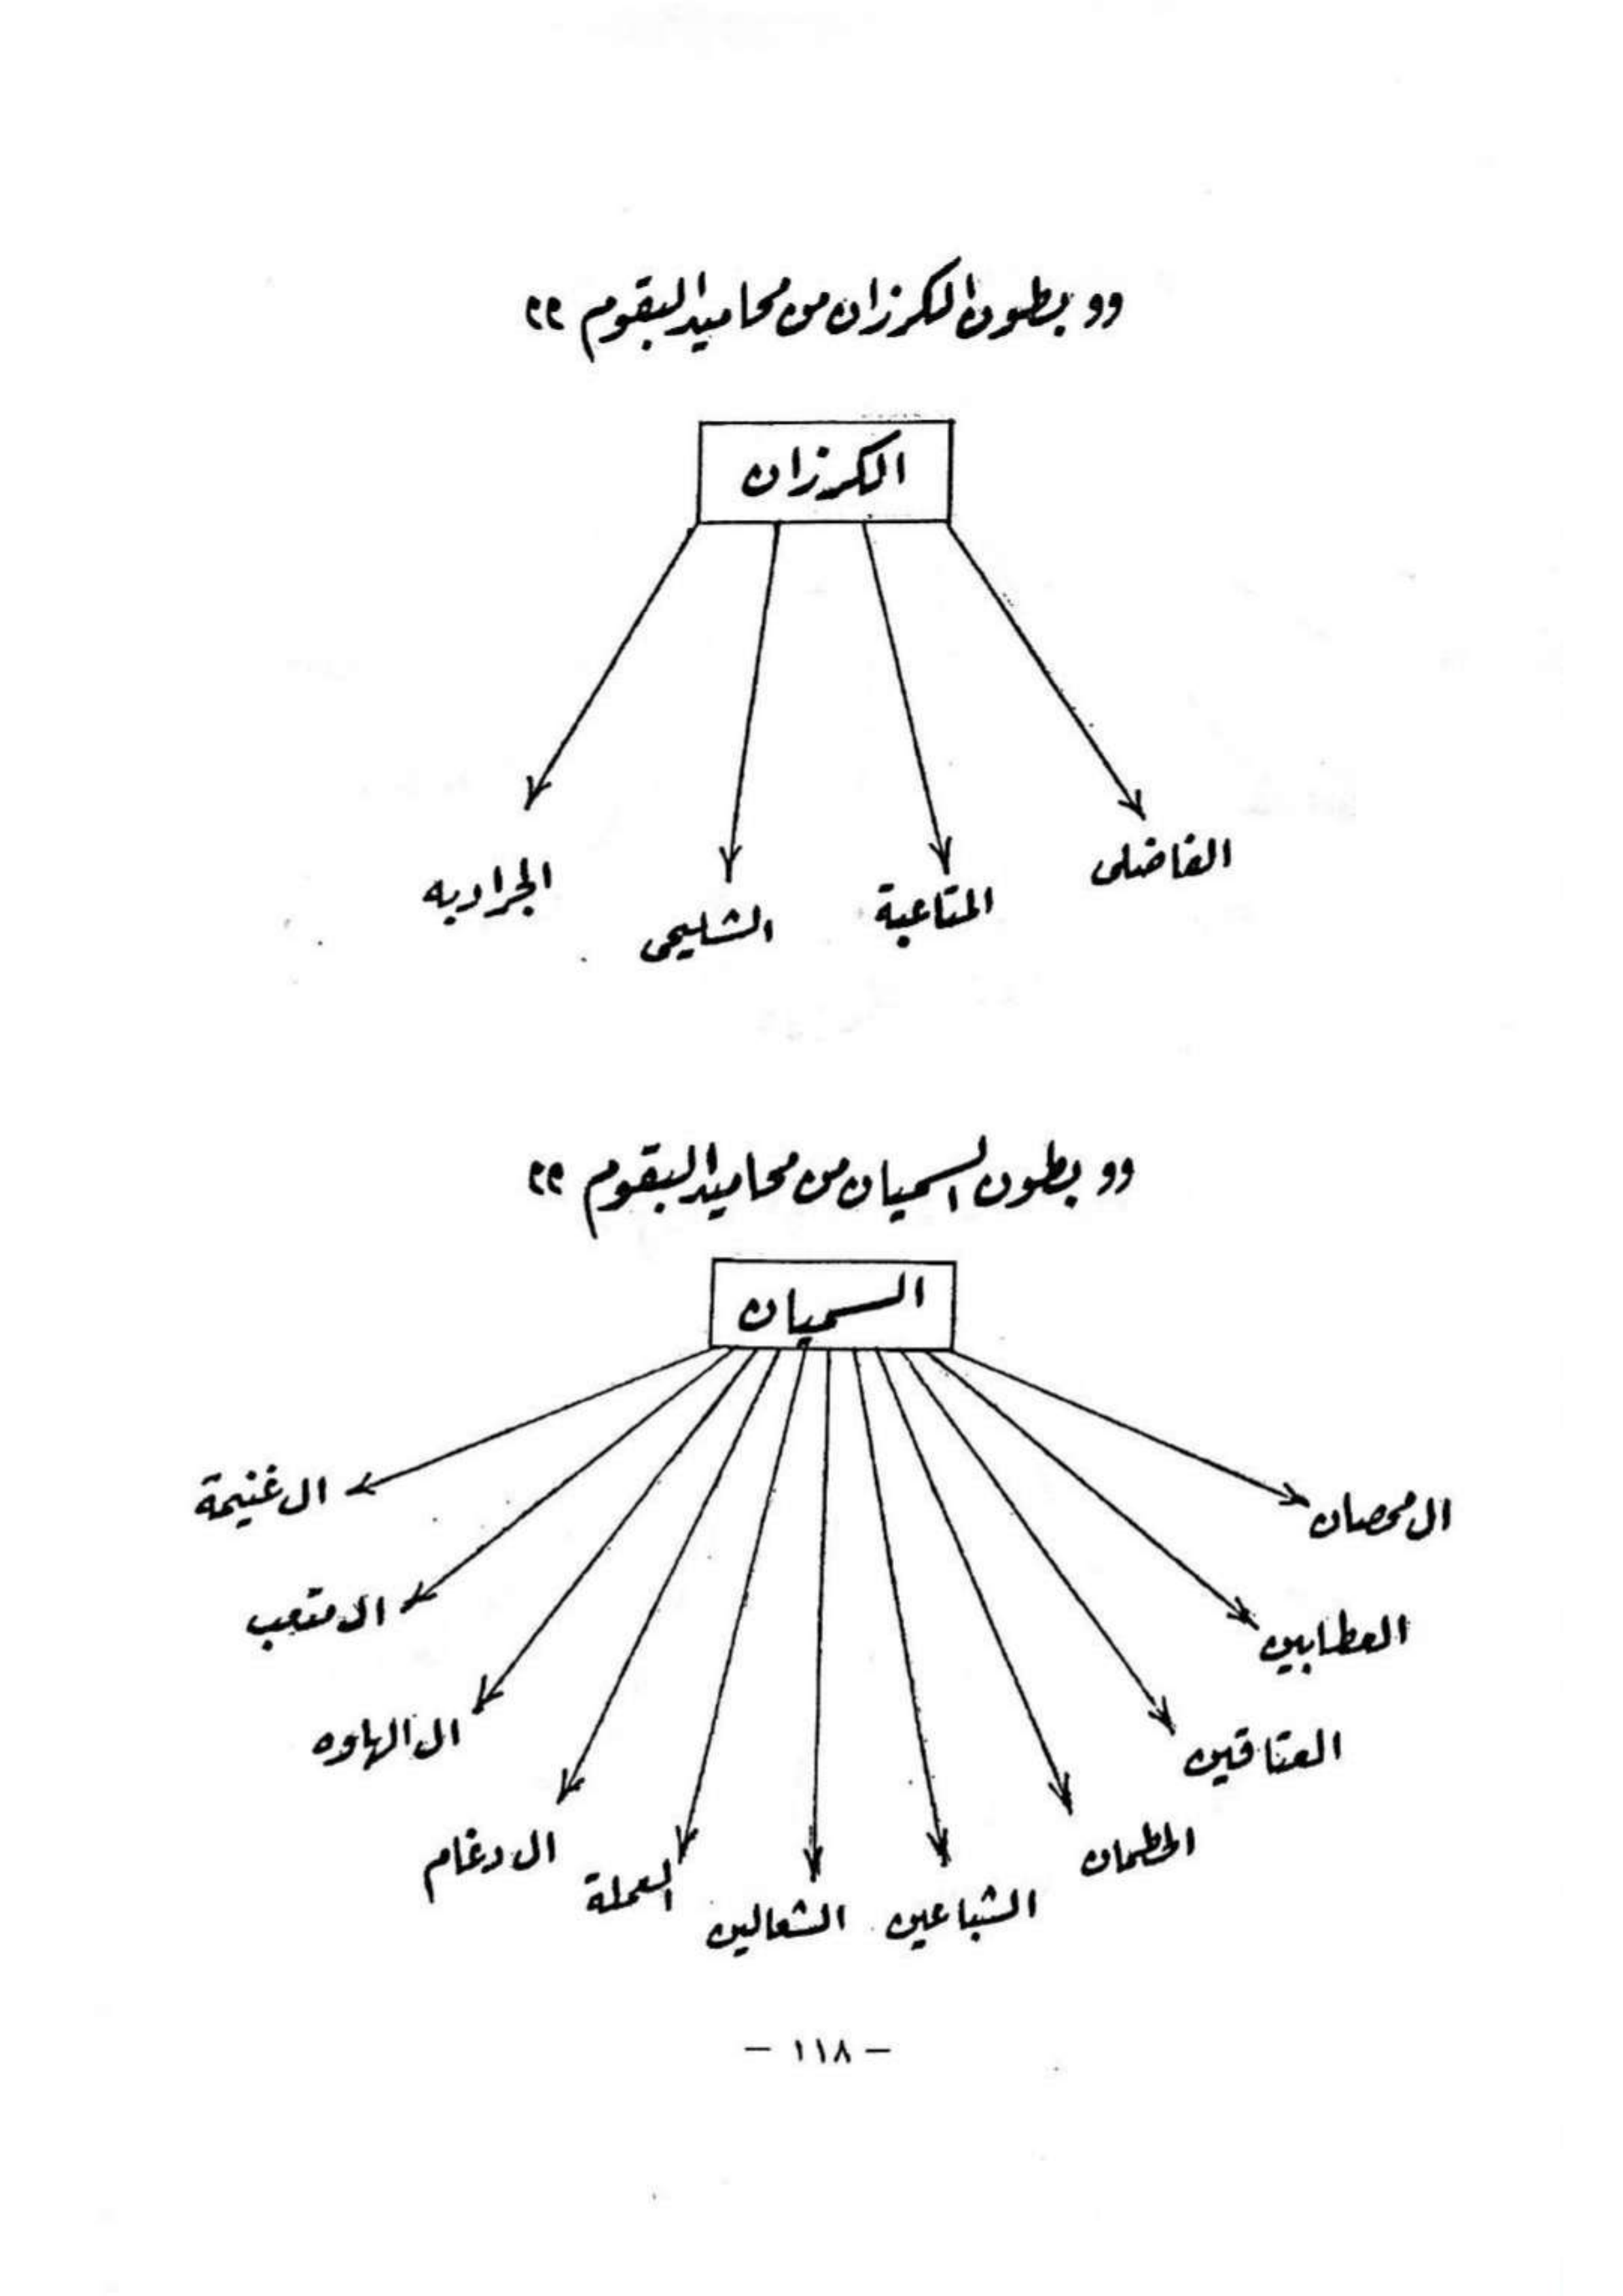 "بطون الكرزان من محاميد البقوم"
الكرزان
الفاضلى
المتاعبة
الشليحى
الجراديه
"بطون السميان من محاميد البقوم"
السميان
ال محصان
العطابين
العتاقين
الحطمان
الشباعين
الشعالين
العملة
ال دغام
ال الهاوه
ال متعب
ال غنيمة
- ١١٨ -